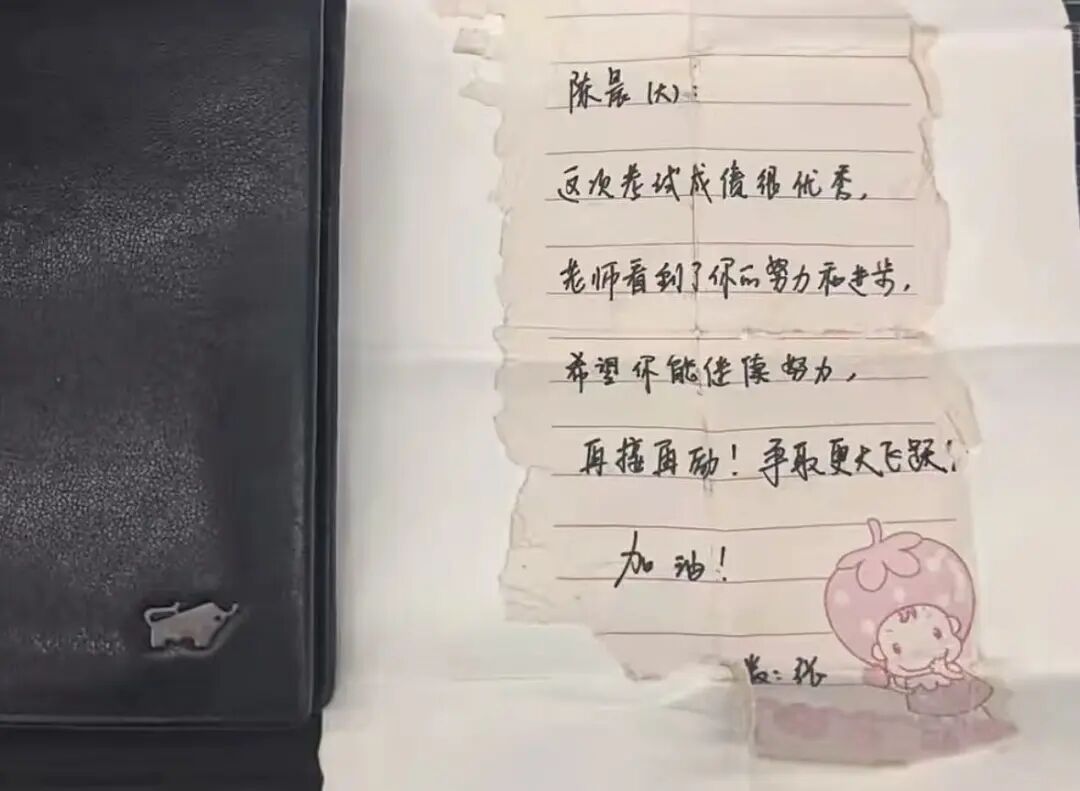 陈晨(大):
这次考试成绩很优秀,
老师看到了你的努力和进步,
希望你能继续努力,
再接再励!争取更大飞跃!
加油!
：张